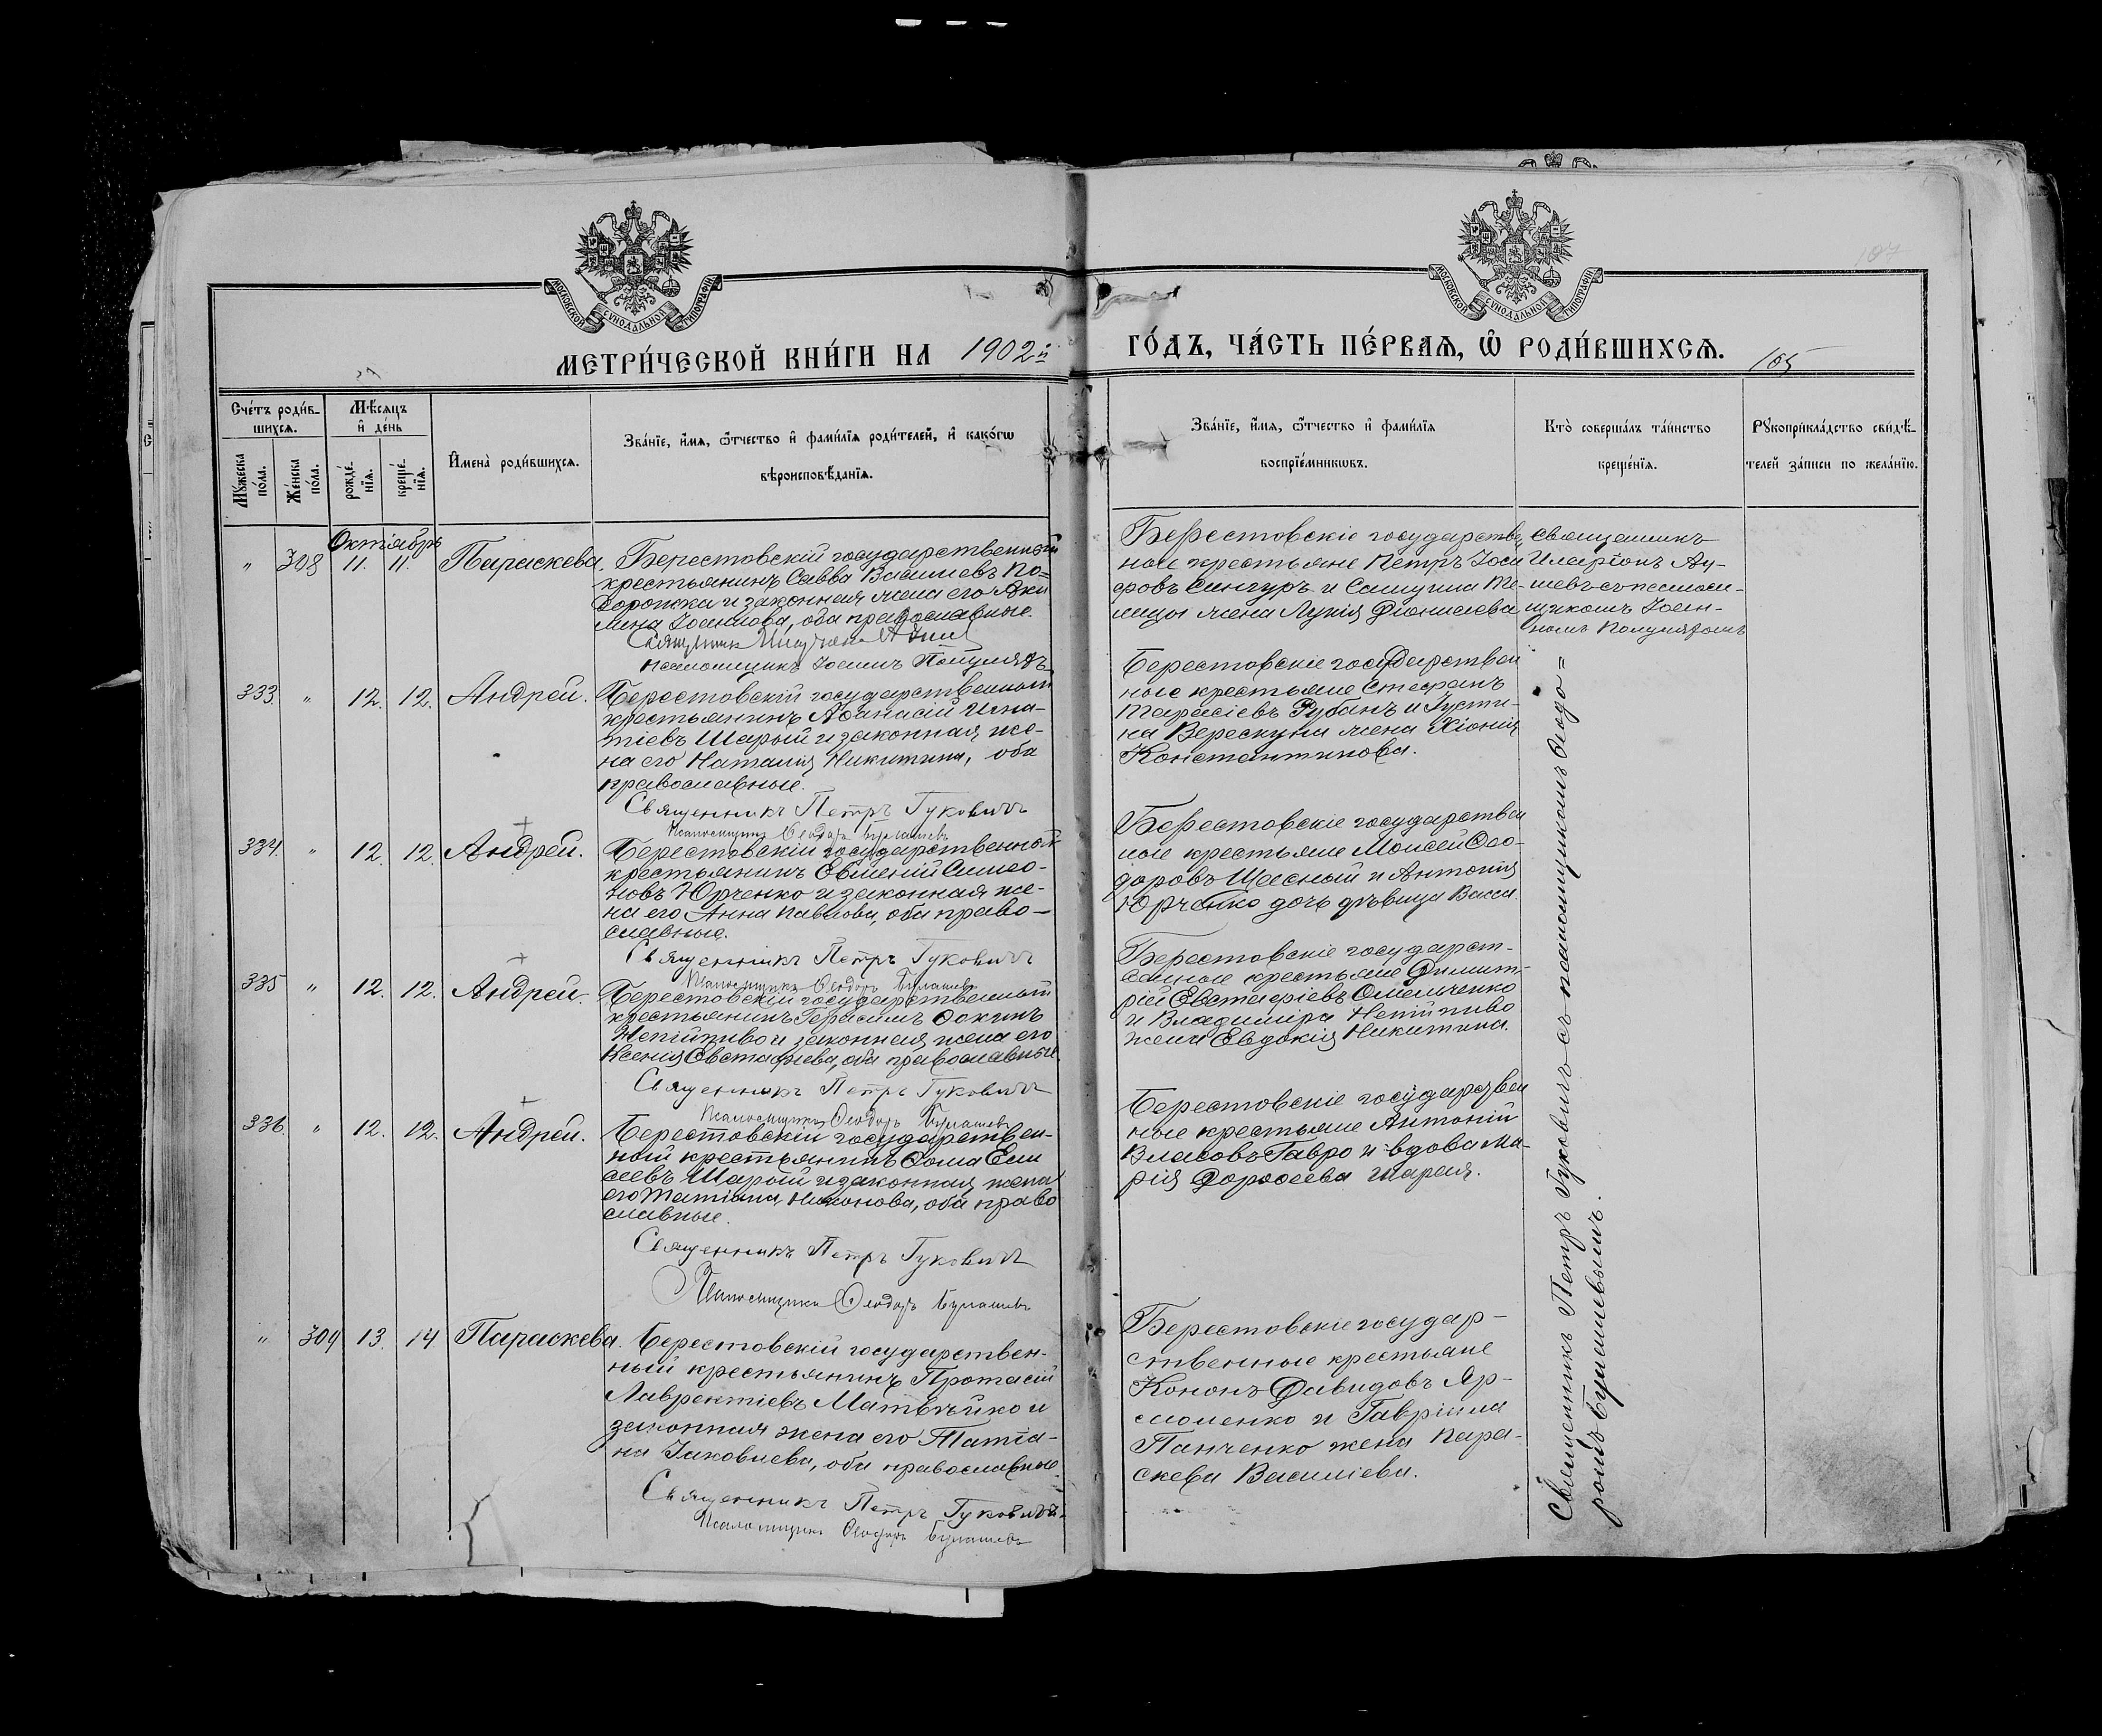 107
МОСКОВСКОЙ СѴНОДАЛЬНОЙ ТИПОГРАФІИ
МОСКОВСКОЙ СѴНОДАЛЬНОЙ ТИПОГРАФІИ
МЕТРИ́ЧЕСКОЙ КНИ́ГИ НА 1902й ГО́ДЪ, ЧА́СТЬ ПЕ́РВАѦ, Ѡ҆ РОДИ́ВШИХСѦ.
105
Сче́тъ роди́в-
шихсѧ.
Мꙋ́жеска
по́ла.
Же́нска
по́ла.
Мѣ́сѧцъ
и҆ де́нь
рожде́-
нїѧ.
креще́-
нїѧ.
И҆мена̀ роди́вшихсѧ.
Зва́нїе, и҆́мѧ, ѻ҆́тчество и҆ фами́лїѧ роди́телей, и҆ како́гѡ
вѣроисповѣ́данїѧ.
Зва́нїе, и҆́мѧ, ѻ҆́тчество и҆ фами́лїѧ
воспрїе́мникѡвъ.
Кто̀ соверша́лъ та́инство
креще́нїѧ.
Рꙋкоприкла́дство свидѣ́-
телей за́писи по жела́нїю.
Октябрь
" 308 11. 11. Параскева.
Берестовскій государственный
крестьянинъ Савва Васильевъ По-
и законная жена его Аки-
лина Іоаннова, оба православные.
Псаломщикъ Іоаннъ Полулях
Берестовскіе государствен
ные крестьяне Петръ Іоси
фовъ Сингуръ и Самуила Те-
лицы жена Лукія Діонисіева
Священникъ
Иларіонъ
съ псалом-
щикомъ Іоан-
номъ
333. " 12. 12. Андрей.
Берестовскій государственный
крестьянинъ Аѳанасій Игна-
тіевъ Шарый и законная же-
на его Наталія Никитина, оба
православные.
Священникъ Петръ Гуковичъ
Псаломщикъ Ѳеодоръ Булашевъ
Берестовскіе государствен
ные крестьяне Стефанъ
Тарасіевъ Рубанъ и Густи-
на Верескуна жена Хіонія
Константинова.
334. " 12. 12. Андрей.
Берестовскій государственный
крестьянинъ Евѳимій Симео-
новъ Юрченко и законная же-
на его Анна Павлова, оба право-
славные.
Священникъ Петръ Гуковичъ
Псаломщикъ Ѳеодоръ Булашевъ
Берестовскіе государствен
ные крестьяне Моисей Ѳео-
доровъ Щасный и Антонія
Юрченко дочь дѣвица Васса.
335 " 12. 12. Андрей.
Берестовскій государственный
крестьянинъ Герасимъ Ѳокинъ
Непійпиво и законная жена его
Ксенія Евстафіева, оба православные
Священникъ Петръ Гуковичъ
Псаломщикъ Ѳеодоръ Булашевъ
Берестовскіе государст-
венные крестьяне Димит-
рій Евстафіевъ Омельченко
и Владиміра Непійпиво
жена Евдокія Никитина.
336. " 12. 12. Андрей.
Берестовскій государствен-
ный крестьянинъ Ѳома Ели
сеевъ Шарый и законная жена
его Татіана Никонова, оба право
славные.
Священникъ Петръ Гуковичъ
Псаломщикъ Ѳеодоръ Булашевъ
Берестовскіе государствен
ные крестьяне Антоній
Власовъ Гавро и вдова Ма-
рія Дороѳеева Шарая.
" 309 13. 14 Параскева.
Берестовскій государствен-
ный крестьянинъ Протасій
Лаврентіевъ Матвѣйко и
законная жена его Татіа-
на Іаковлева, оба православные.
Священникъ Петръ Гуковичъ.
Псаломщикъ Ѳеодоръ Булашевъ
Берестовскіе государ-
ственные крестьяне
Кононъ Давидовъ Яр-
моленко и Гавріила
Панченко жена Пара-
скева Василіева.
Священникъ Петръ Гуковичъ съ псаломщикомъ Ѳеодо=
ромъ Булашевымъ.